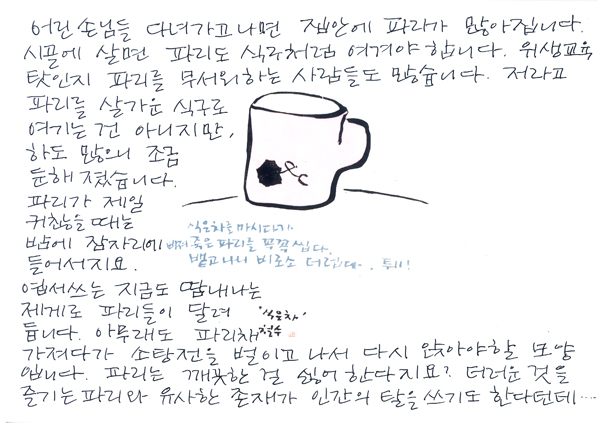 어린 손님들 다녀가고나면 집안에 파리가 많아집니다.
시골에 살면 파리도 식구처럼 여겨야 합니다. 위생교육
탓인지 파리를 무서워하는 사람들도 많습니다. 저라고
파리를 살가운 식구로
여기는 건 아니지만,
하도 많으니 조금
둔해졌습니다.
파리가 제일
귀찮을 때는
밤에 잠자리에
들어서지요.
식은차를 마시다가
빠져죽은 파리를 무쩍 씹다.
뱉고나니 비로소 더럽다. . 퉤!
엽서쓰는 지금도 땀내나는
제게로 파리들이 달려
듭니다. 아무래도 파리채
'식은차'
철수
가져다가 소탕전을 벌이고 나서 다시 앉아야할 모양
입니다. 파리는 깨끗한 걸 싫어 한다지요? 더러운 것을
즐기는 파리와 유사한 존재가 인간의 탈을 쓰기도 한다던데···